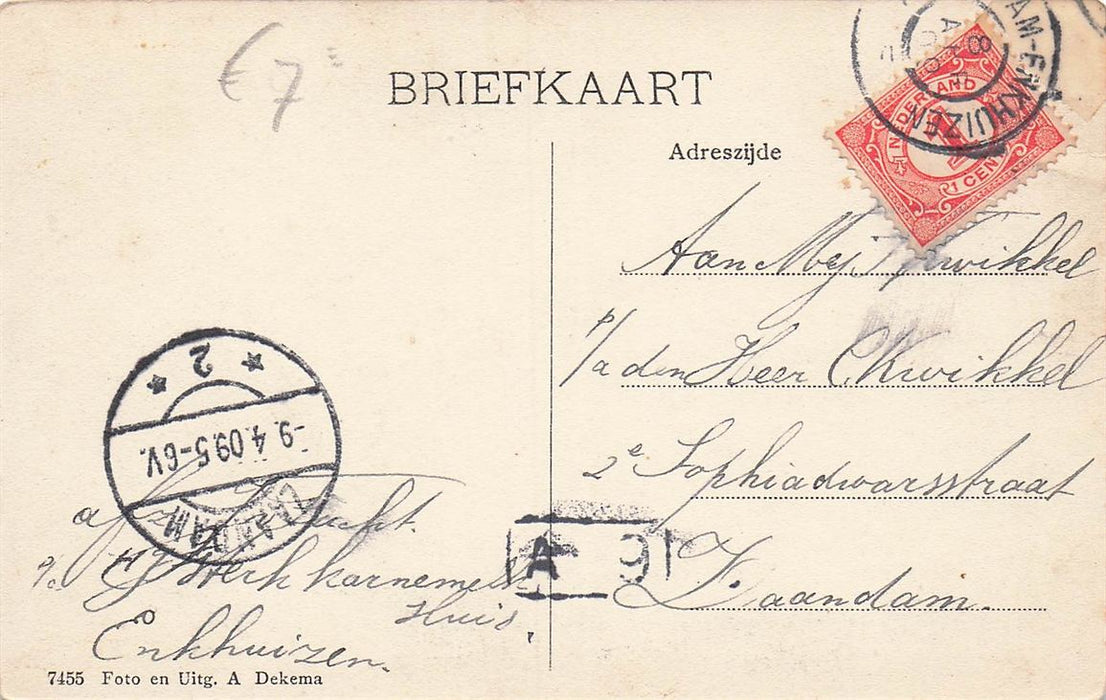 €7
BRIEFKAART
Adreszijde
AM-ENKHUIZEN
8
NEDERLAND
1 CENT
Aan Mej. Kwikkel
p/a den Heer C Kwikkel
2e Sophiadwarsstraat
Zaandam.
2
-9.4.09.5-6V.
ZAANDAM
A 9
afz.
p/a H J Werk karnemelk
Huis,
Enkhuizen.
7455 Foto en Uitg. A Dekema